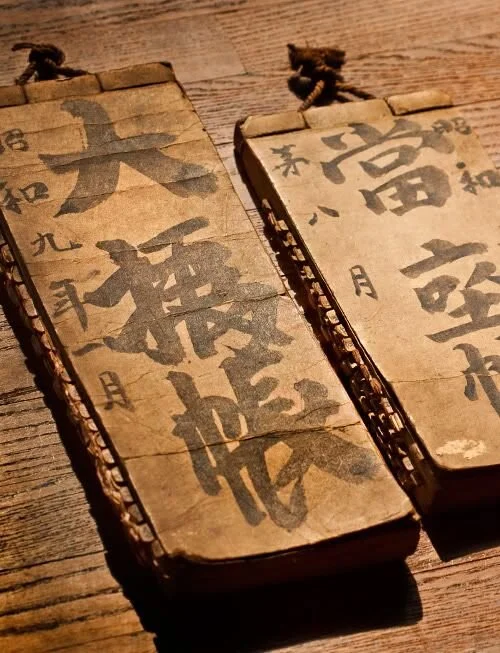 昭和
當座帳
第八月
大福帳
昭和九年一月